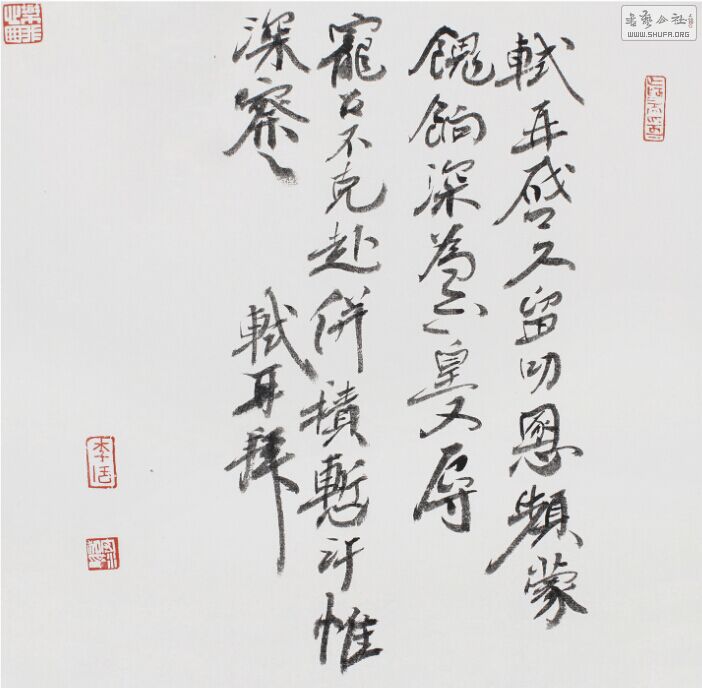 軾再啓久留叨恩頻蒙
餽餉深為不皇又辱
寵召不克赴併積慙汗惟
深察〻
軾再拜
书艺公社
WWW.SHUFA.ORG